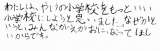 わたしは、やしの小学校をもっといい
小学校にしようと思いました。なぜかと
いうと、みんなかえがおになってほし
いからです。